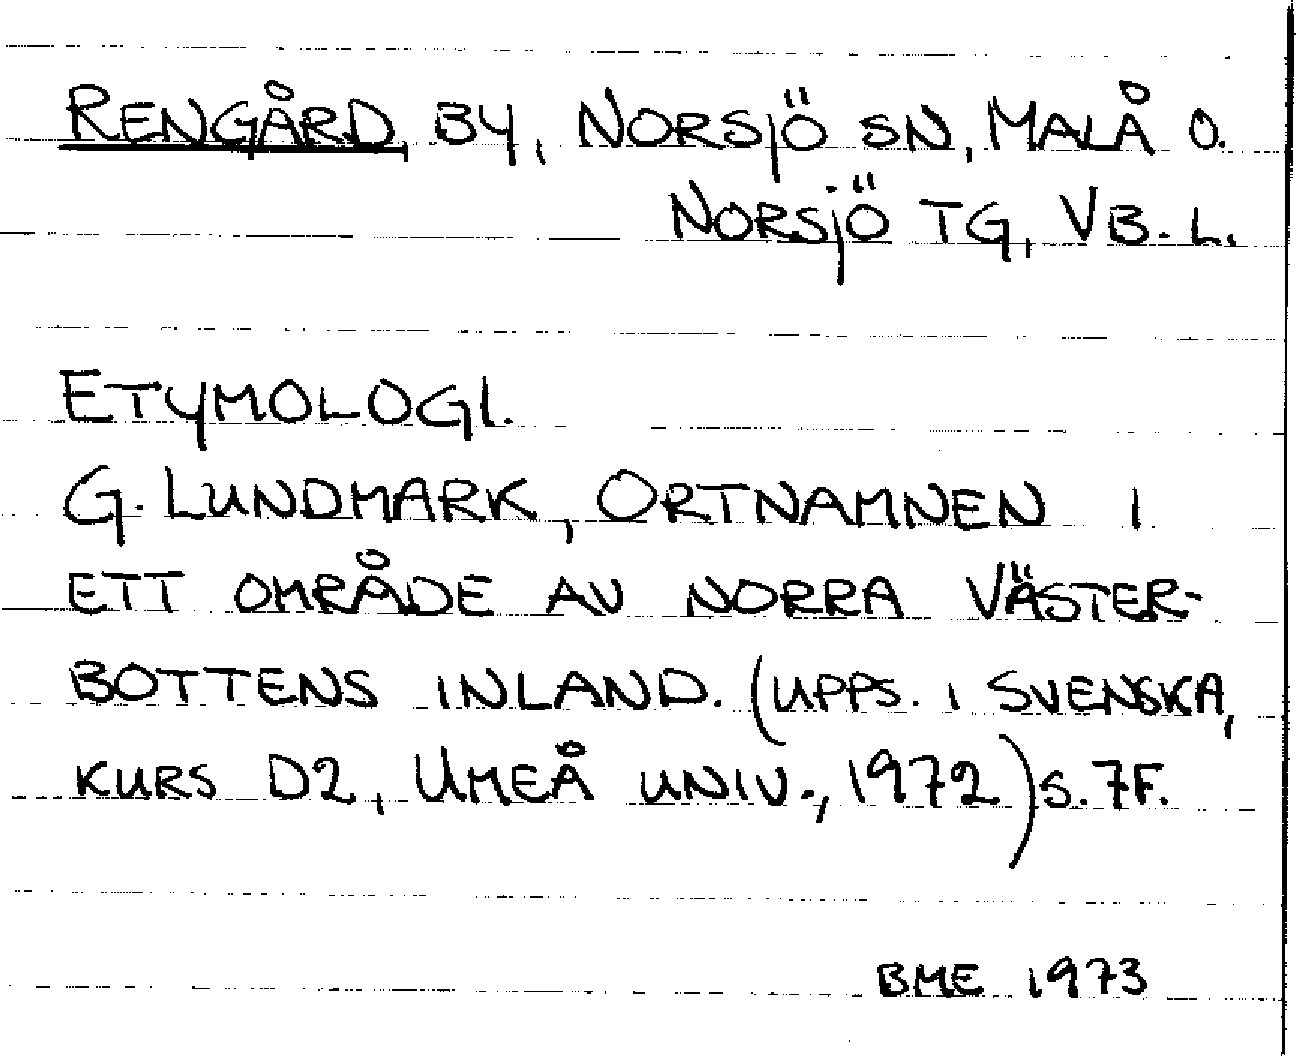 RENGÅRD, BY, NORSJÖ SN, MALÅ O.
NORSJÖ TG, VB. L.
ETYMOLOGI.
G. LUNDMARK, ORTNAMNEN I
ETT OMRÅDE AV NORRA VÄSTER-
BOTTENS INLAND. (UPPS. I SVENSKA,
KURS D2, UMEÅ UNIV., 1972) S. 7F.
BME 1973